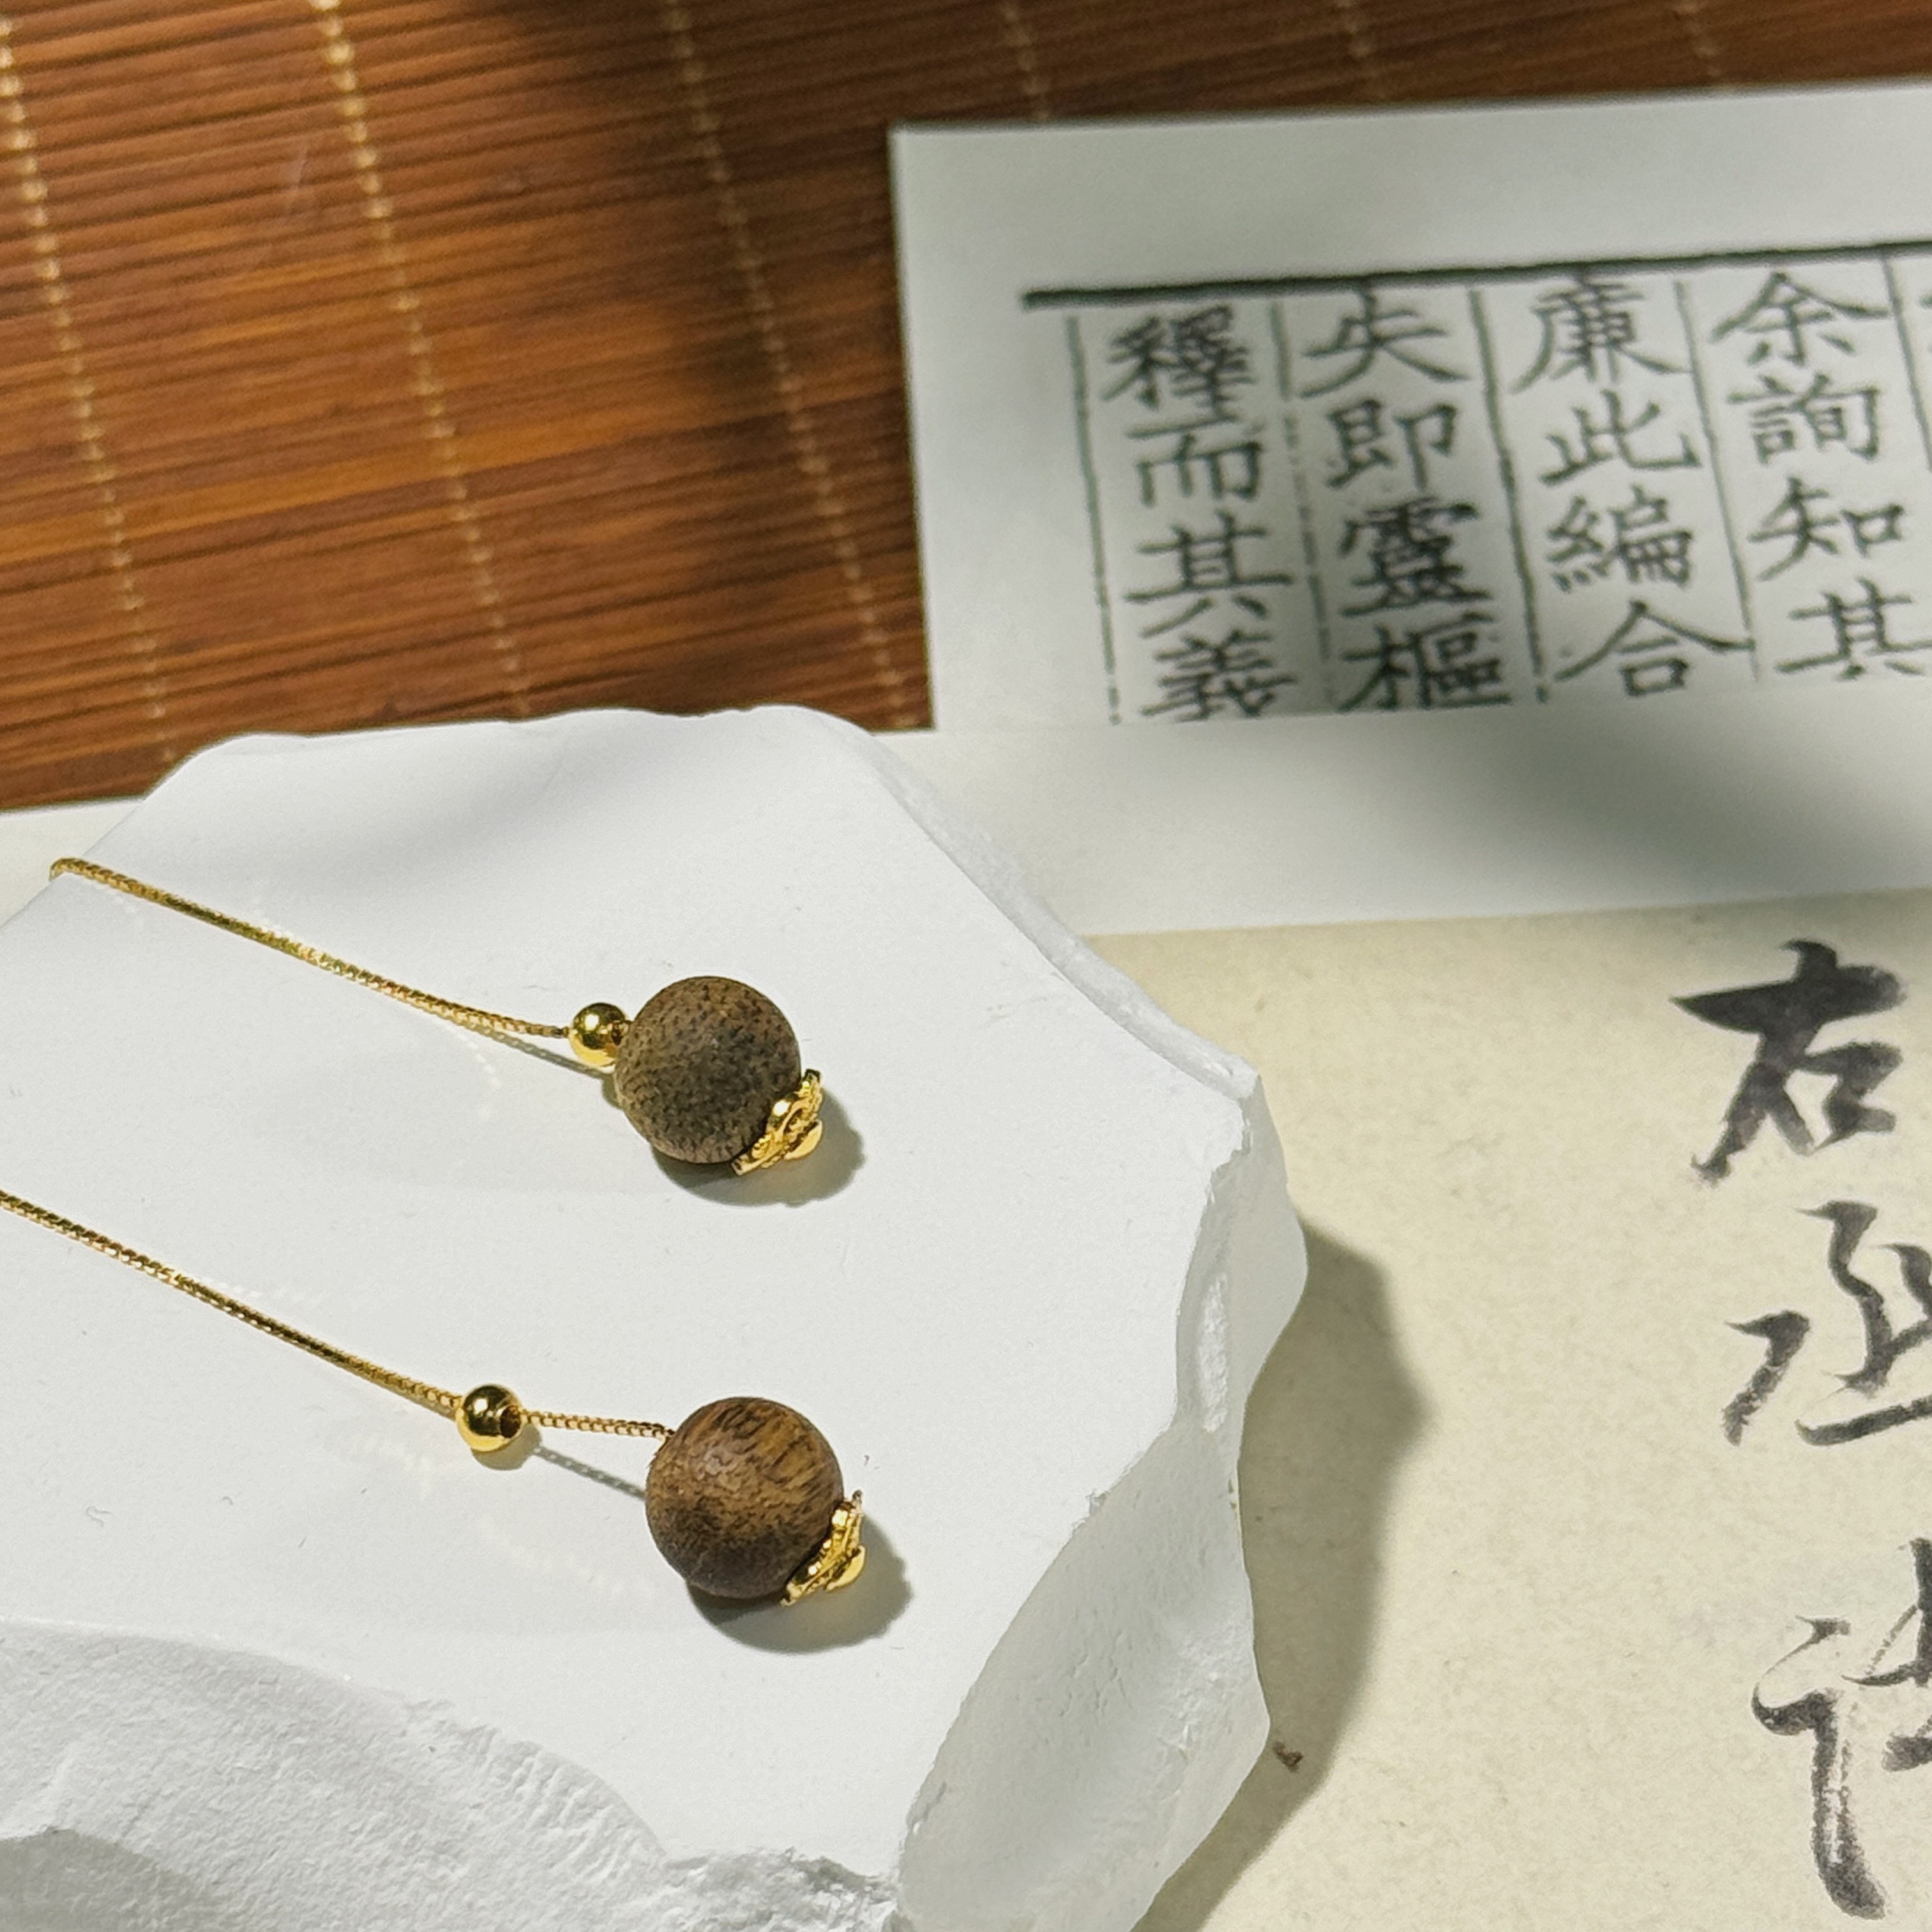 余詢知其
廉此編合
失即靈樞
釋而其義
右丞